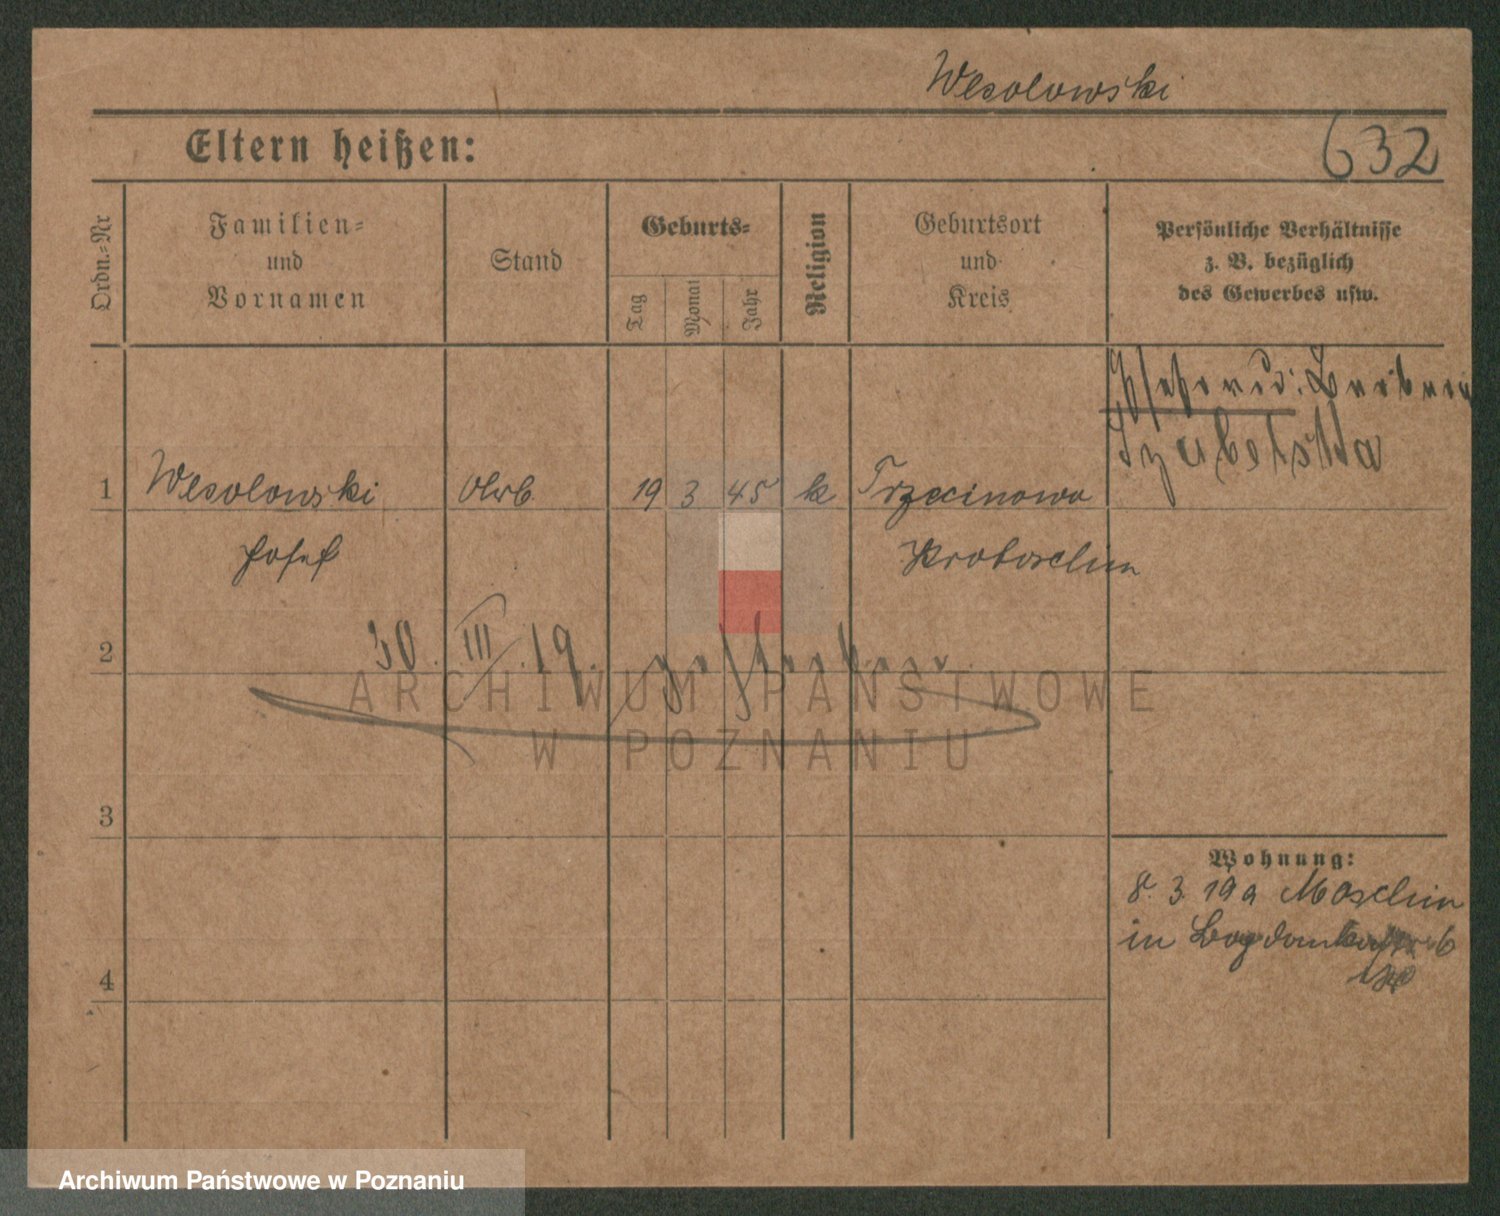 Wesolowski
Eltern heißen:
632
Ordn.=Nr
Familien=
und
Vornamen
Stand
Geburts=
Tag
Monat
Jahr
Religion
Geburtsort
und
Kreis
Persönliche Verhältnisse
z. B. bezüglich
des Gewerbes usw.
1
Wesolowski
19 3 45 k
Josef
Krotoschin
2
30. III. 19. gestorben.
3
4
Wohnung:
8. 3. 19 a Moschin
in
6
ARCHIWUM PAŃSTWOWE
W POZNANIU
Archiwum Państwowe w Poznaniu